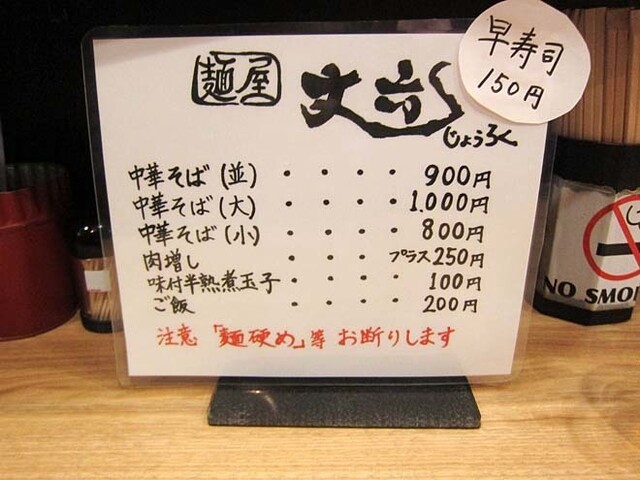 早寿司
150円
麺屋 丈六
じょうろく
中華そば(並)・・・・900円
中華そば(大)・・・・1.000円
中華そば(小)・・・・800円
肉増し・・・・プラス250円
味付半熟煮玉子・・・・100円
ご飯・・・・200円
注意「麺硬め」等 お断りします
NO SMO